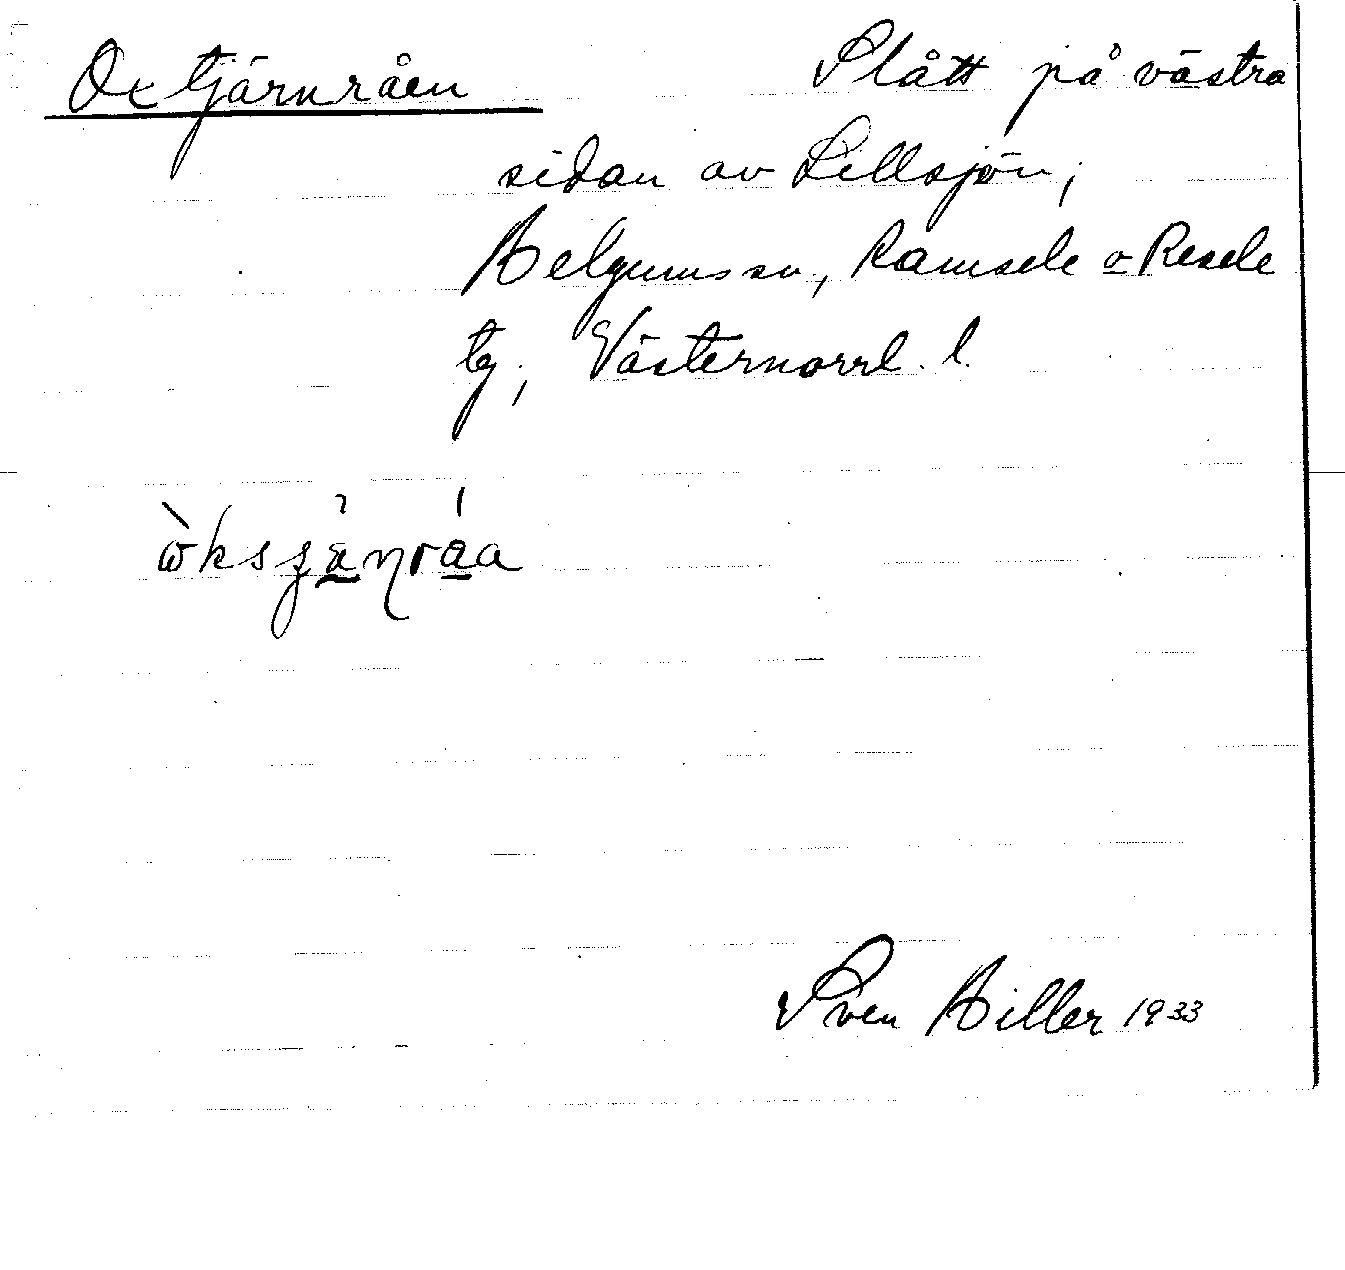 Oxtjärnråen
Slått på västra
sidan av Lillsjön;
Helgums sn, Ramsele o Resele
tg; Västernorrl. l.
Sven Hiller 1933